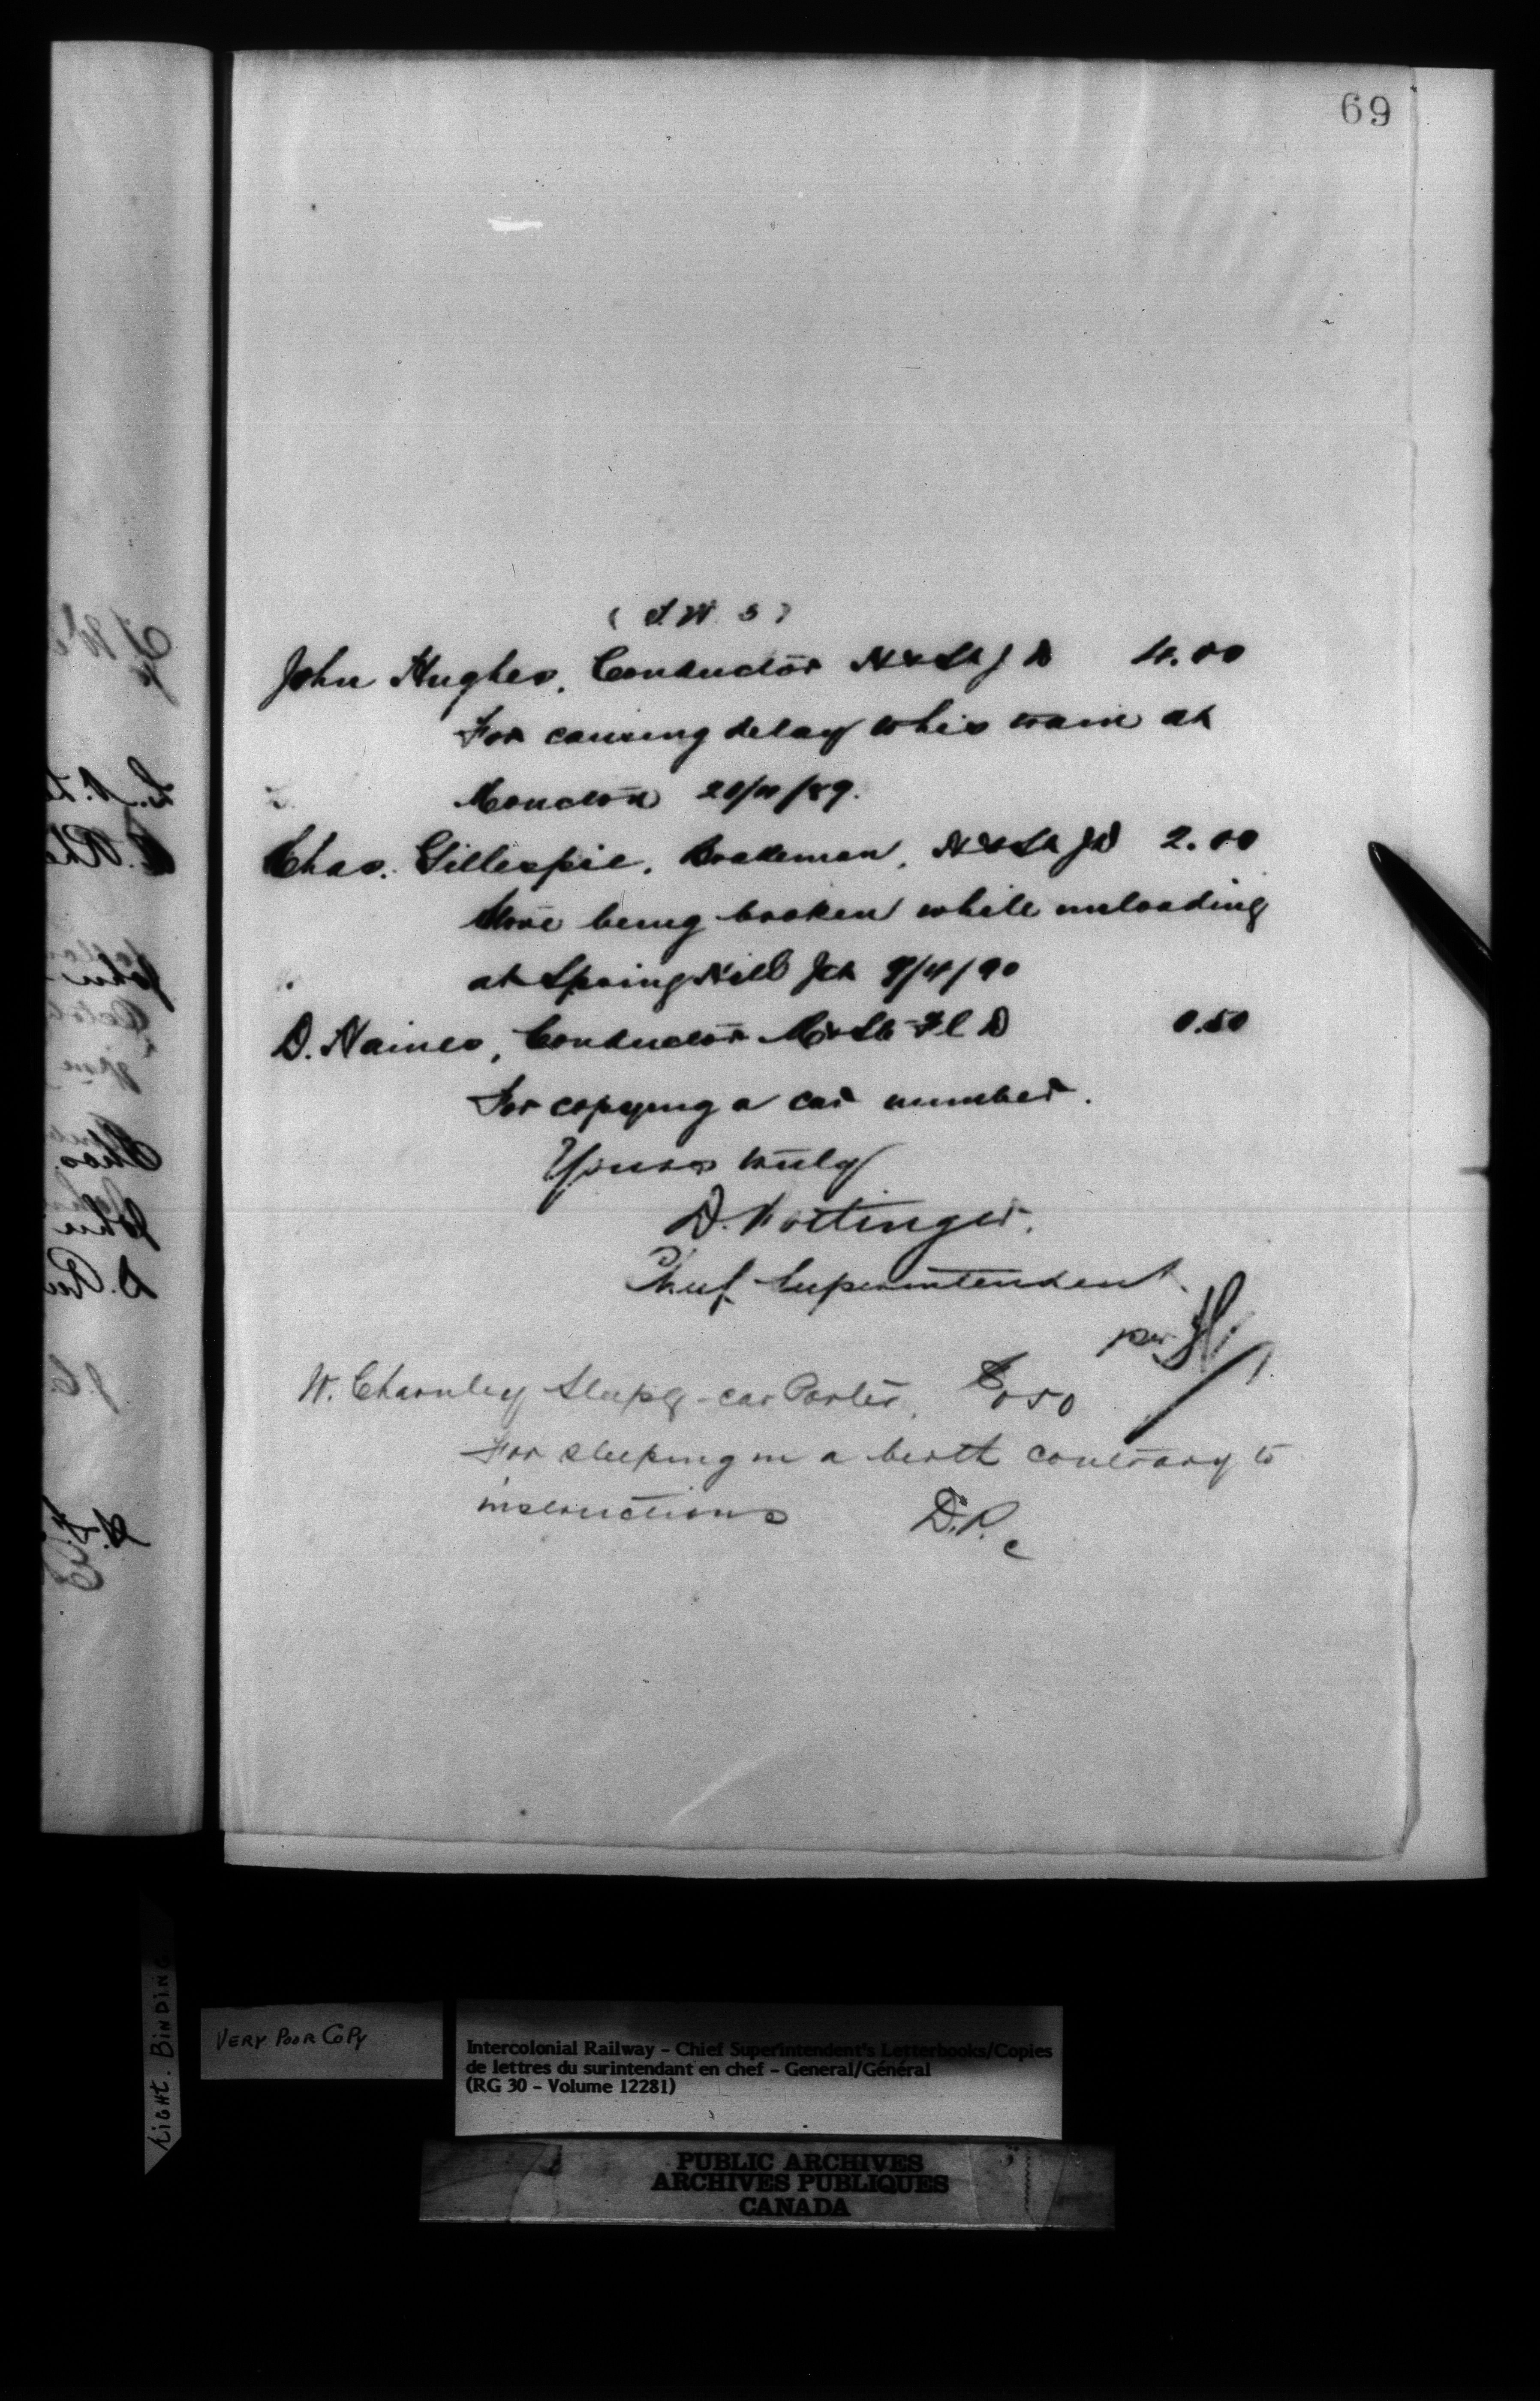 69
John Hughes, Conductor H & St J D 4.00
For causing delay to his train at
Moncton
Chas. Gillespie, Brakeman, H & St J D 2.00
Stove being broken while unloading
at Spring Hill Jct 9/4/90
D. Haines, Conductor M & Ste F l D 0.50
For copying a car number.
Yours truly
D. Pottinger.
Chief Superintendent
per
W. Charnley Sleepg-car Porter, $0 50
For sleeping in a berth contrary to
instructions D.P.
LIGHT. BINDING
VERY POOR COPY
Intercolonial Railway - Chief Superintendent's Letterbooks/Copies
de lettres du surintendant en chef - General/Général
(RG 30 - Volume 12281)
PUBLIC ARCHIVES
ARCHIVES PUBLIQUES
CANADA